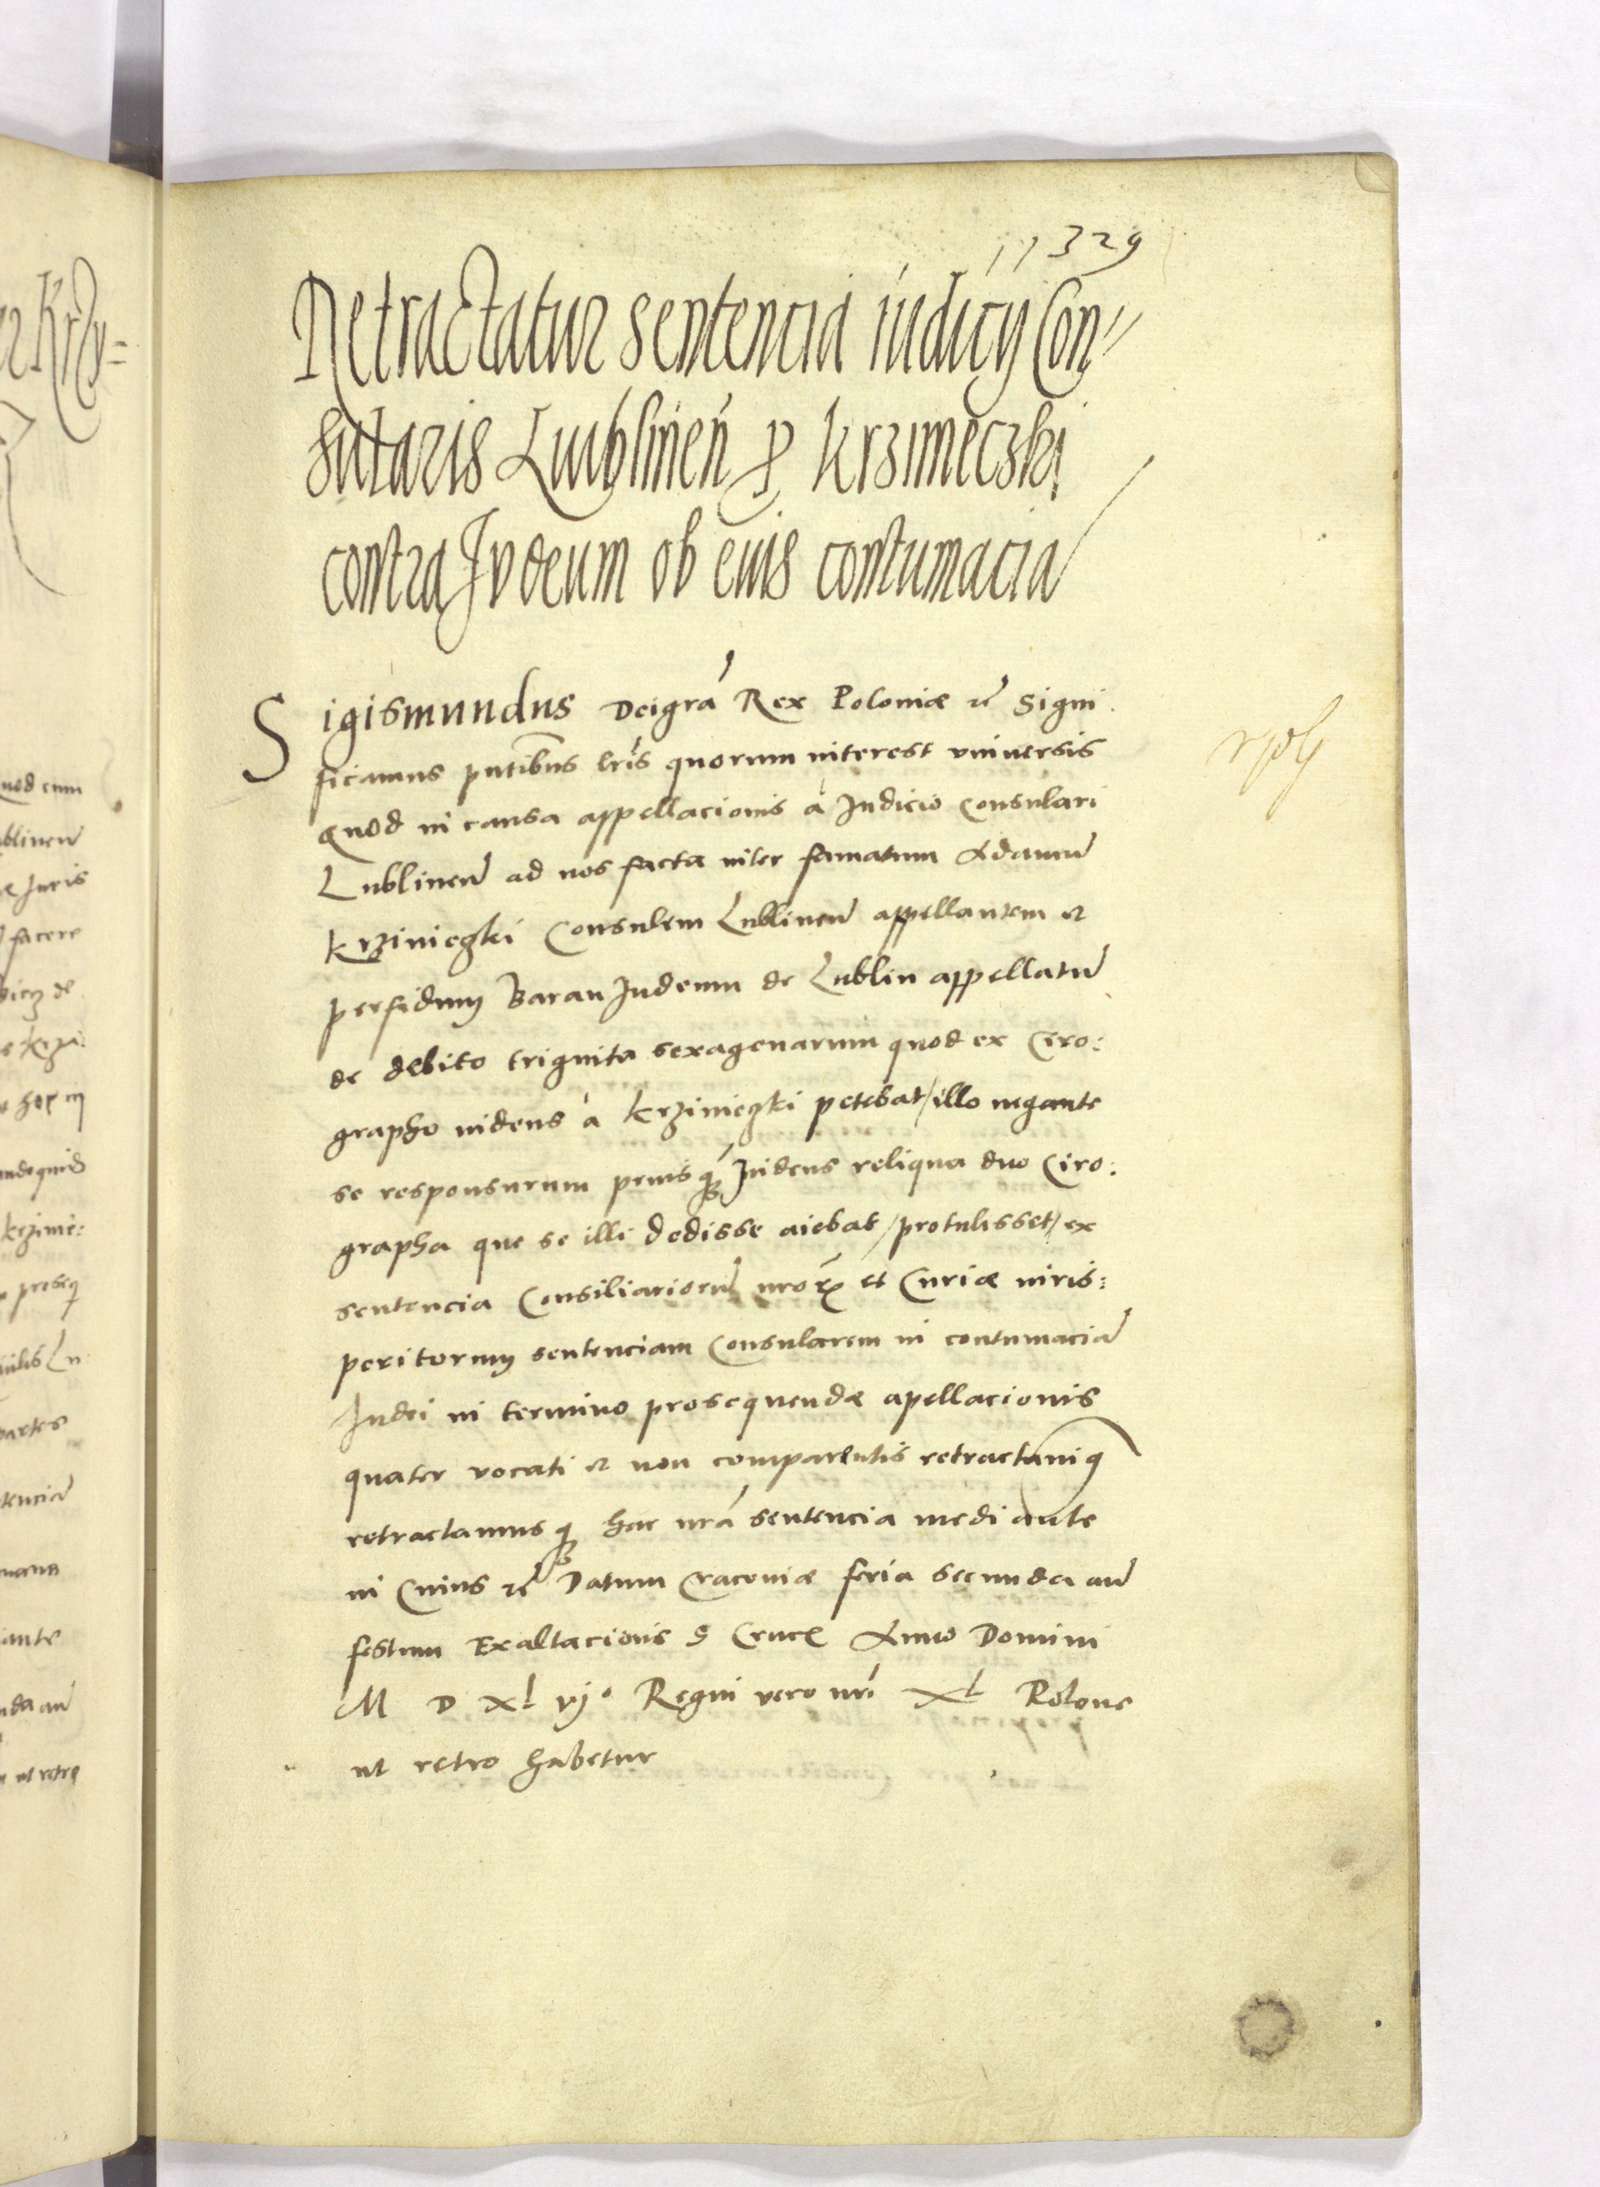 11329
Retractatur sentencia iudicÿ Con„
sularis Lublinen̄ p Krzimeczki
contra Judeum ob euis contumacia
Sigismundus Dei grã Rex Poloniæ &c̄ Signi
ficamus pñtibus lr̃is quorum interest vniuersis
Quod in causa appellacionis à Iudicio Consulari
Lublinen̄ ad nos facta inter famatum Adamum̄
Krzinieczki Consulem Lublinen̄ appellantem et
perfidum Baran Judeum de Lublin appellatum̄
de debito triginta sexagenarum quod ex Ciro:
grapho iudeus à Krzinieczki petebat / illo negante
se responsurum prius q̃ Iudeus reliqua duo Ciro:
grapha que se illi dedisse aiebat / protulisset / ex
sentencia Consiliariorum̄ nrõꝝ et Curiæ iuris:
peritorum sentenciam Consularem in contumaciam̄
Iudei in termino prosequendæ apellacionis
quater vocati et non comparentis retractaui q
retractamusq hac nrã sentencia mediante
in Cuius &c̄ Datum Cracoviæ feria secunda an̄
festum Exaltacionis S Crucꝭ Anno Domini
M D xl vj° Regni vero nrĩ xl Polone
ut retro habetur